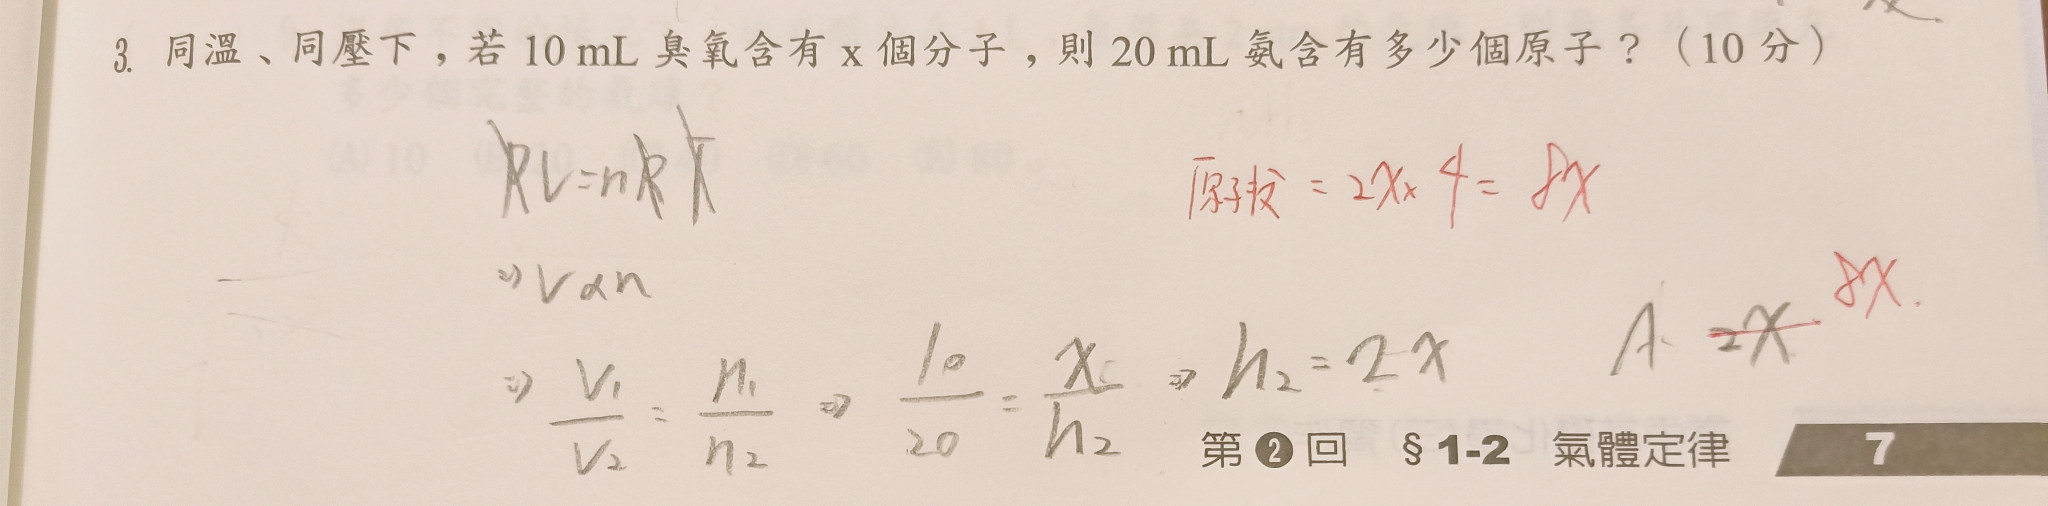 3. 同溫、同壓下，若 10 mL 臭氧含有 x 個分子，則 20 mL 氨含有多少個原子？（10 分）
PV=nRT
原子數 = 2x × 4 = 8x
⇒ V α n
8x.
A 2x
⇒ V₁/V₂ = n₁/n₂ ⇒ 10/20 = x/n₂ ⇒ n₂ = 2x
第 2 回 §1-2 氣體定律 7